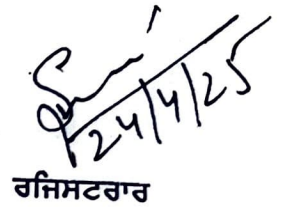 24/4/25
ਰਜਿਸਟਰਾਰ